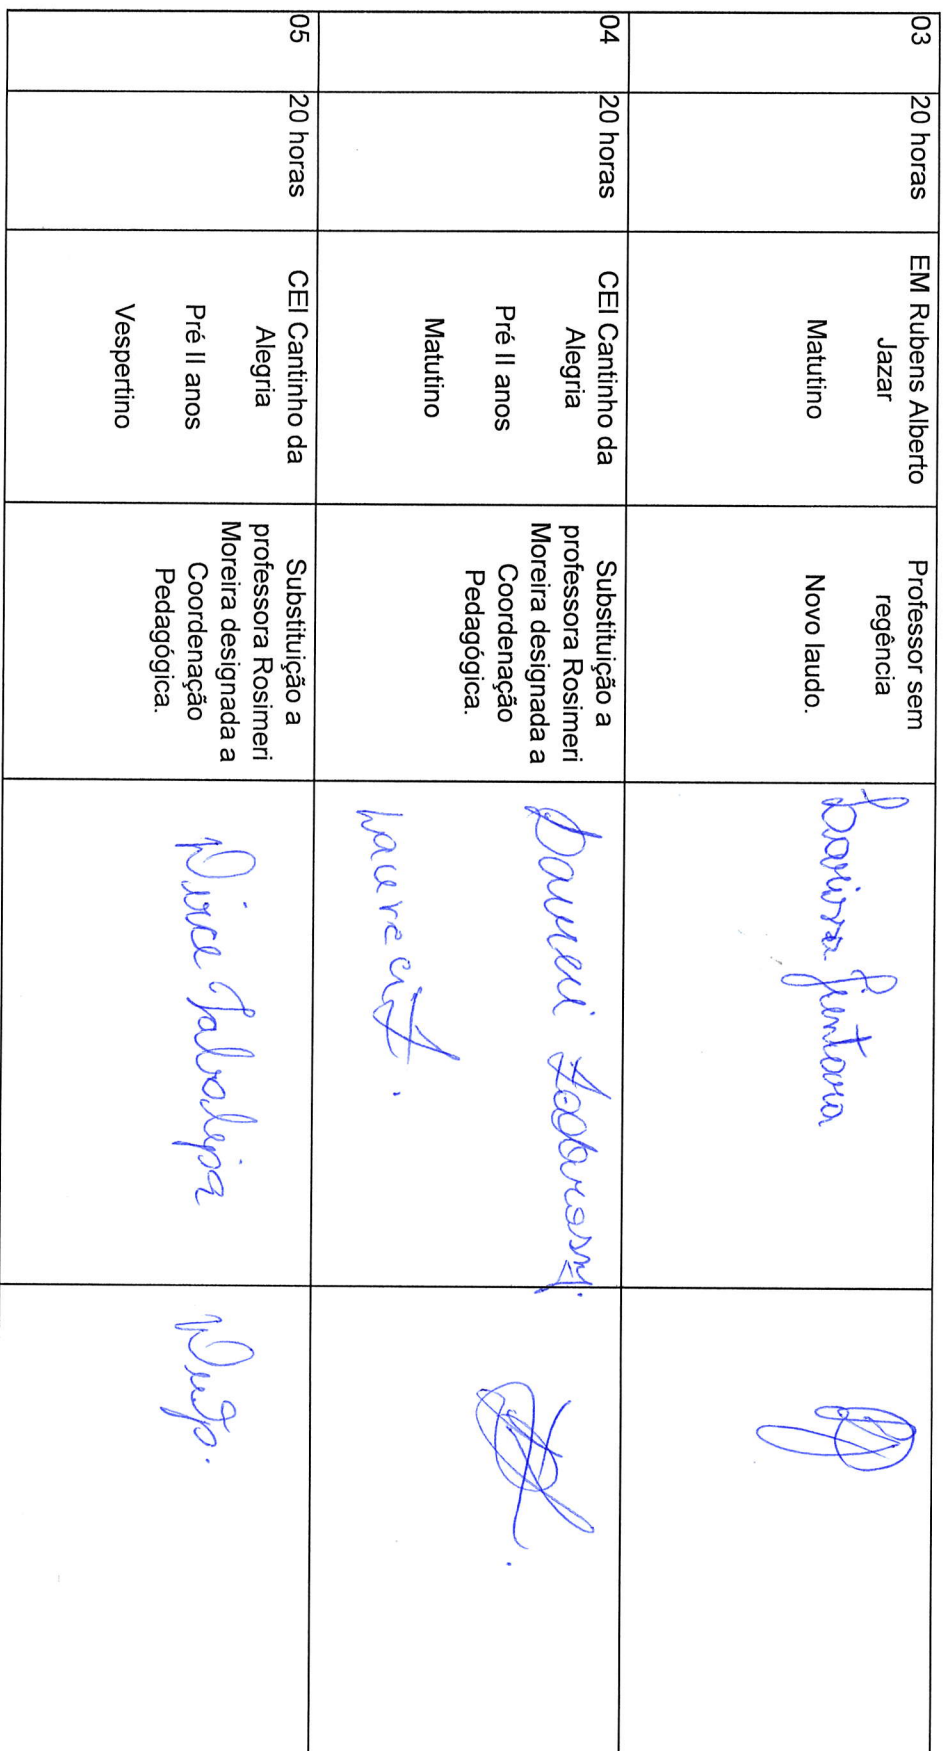 03
20 horas
EM Rubens Alberto
Jazar
Matutino
Professor sem
regência
Novo laudo.
04
20 horas
CEI Cantinho da
Alegria
Pré II anos
Matutino
Substituição a
professora Rosimeri
Moreira designada a
Coordenação
Pedagógica.
05
20 horas
CEI Cantinho da
Alegria
Pré II anos
Vespertino
Substituição a
professora Rosimeri
Moreira designada a
Coordenação
Pedagógica.
Dirce